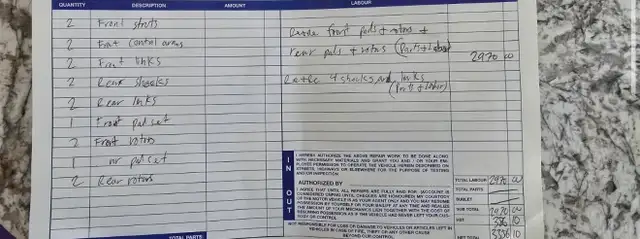 QUANTITY DESCRIPTION AMOUNT LABOUR
2 Front struts
2 Front control arms
2 Front links
2 Rear shocks
2 Rear links
1 Front pad set
2 Front rotors
1 pad set
2 Rear rotors
front pads + rotors +
rear pads + rotors (Parts + Labor) 2970 00
4 shocks and links
(Parts + Labor)
IN
I HEREBY AUTHORIZE THE ABOVE REPAIR WORK TO BE DONE ALONG
WITH NECESSARY MATERIALS AND GRANT YOU AND / OR YOUR EM-
PLOYEE PERMISSION TO OPERATE THE VEHICLE HEREIN DESCRIBED ON
STREETS, HIGHWAYS OR ELSEWHERE FOR THE PURPOSE OF TESTING
AND/OR INSPECTION
AUTHORIZED BY
OUT
I AGREE THAT UNTIL ALL REPAIRS ARE FULLY PAID FOR
MY CUSTODY
OF THE MOTOR VEHICLE IS AS YOUR AGENT ONLY AND YOU MAY RESUME
POSSESSION BY YOURSELF OR YOUR BAILIFF AT ANY TIME AND REALIZE
THE AMOUNT OF YOUR MECHANICS LIEN TOGETHER WITH THE COST OF
RESUMING POSSESSION AS IF THIS VEHICLE HAD NEVER LEFT YOUR CUS-
TODY OR CONTROL
NOT RESPONSIBLE FOR LOSS OR DAMAGE TO VEHICLES OR ARTICLES LEFT IN
VEHICLES IN CASE OF FIRE, THEFT OR ANY OTHER CAUSE
BEYOND OUR CONTROL
TOTAL LABOUR 2970 00
TOTAL PARTS
SUBLET
SUB TOTAL 2970 00
HST 386 10
NET TOTAL 3356 10
TOTAL PARTS